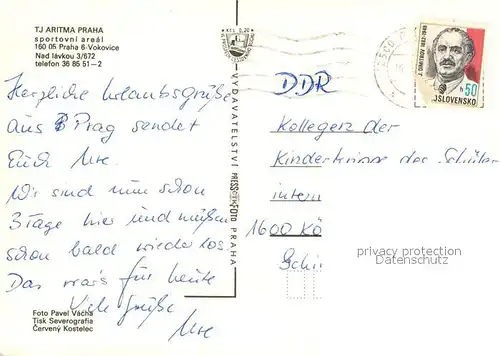 TJ ARITMA PRAHA
sportovní areál
160 05 Praha 6-Vokovice
Nad lávkou 3/672
telefon 36 85 51-2
Herzliche Urlaubsgrüße
aus Prag sendet
Euch Ute.
Wir sind nun schon
3 Tage hier und müßen
schon bald wieder los.
Das war's für heute
Viele Grüße
Ute
Foto Pavel Vácha
Tisk Severografia
Červený Kostelec
KčL 0,20
VYDAVATELSTVÍ PRESSFOTO PRAHA
J. DIMITROV 1882-1949
50
ČESKOSLOVENSKO
DDR
Kolleger der
Kinderkrippe des Schüler
intern
1600 Kö
Schü
privacy protection
Datenschutz